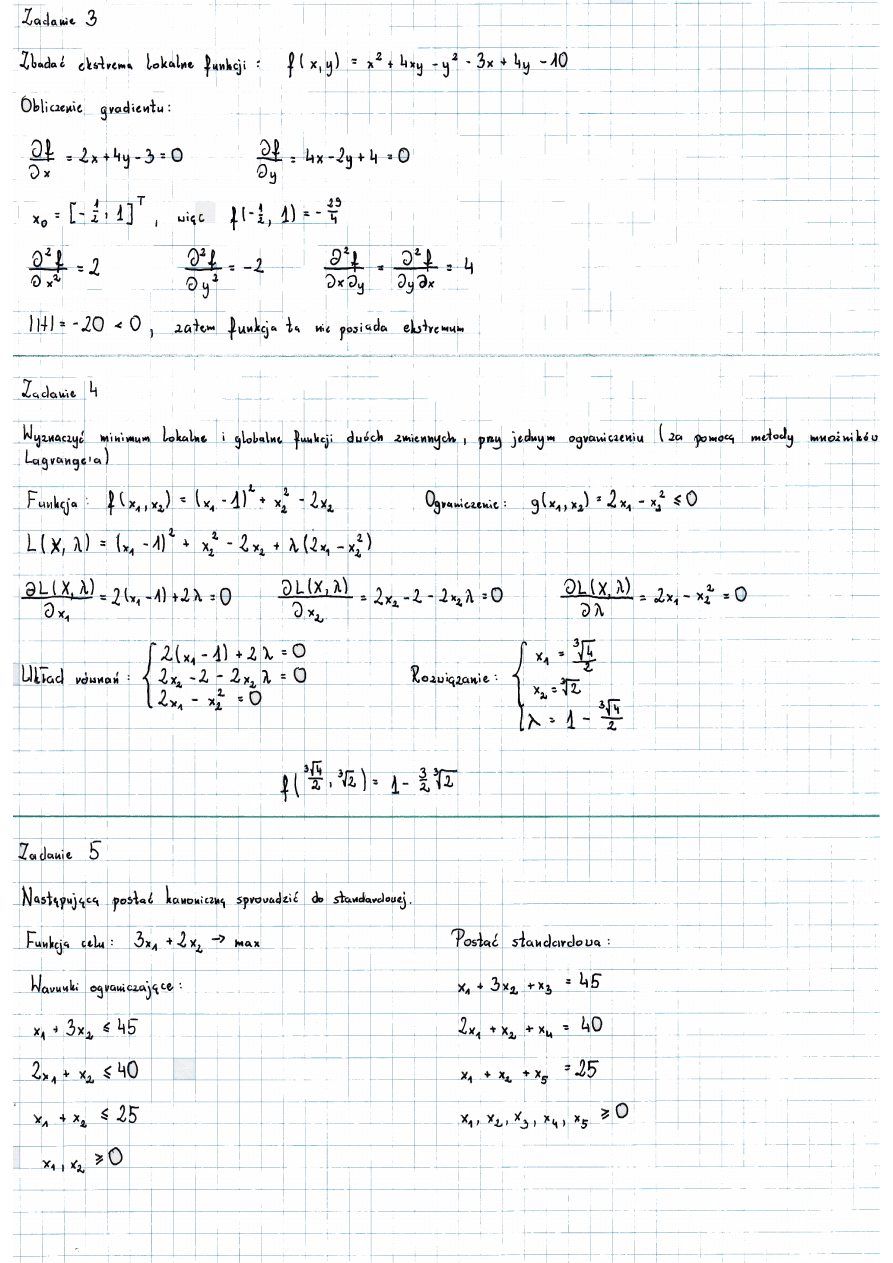 Zadanie 3
Zbadać ekstrema lokalne funkcji : f(x,y) = x² + 4xy - y² - 3x + 4y - 10
Obliczenie gradientu:
∂f/∂x = 2x + 4y - 3 = 0    ∂f/∂y = 4x - 2y + 4 = 0
x₀ = [-1/2, 1]ᵀ, więc f(-1/2, 1) = -29/4
∂²f/∂x² = 2    ∂²f/∂y² = -2    ∂²f/∂x∂y = ∂²f/∂y∂x = 4
|H| = -20 < 0, zatem funkcja ta nie posiada ekstremum
Zadanie 4
Wyznaczyć minimum lokalne i globalne funkcji dwóch zmiennych, przy jednym ograniczeniu (za pomocą metody mnożników
Lagrange'a)
Funkcja: f(x₁, x₂) = (x₁ - 1)² + x₂² - 2x₂    Ograniczenie: g(x₁, x₂) = 2x₁ - x₂² ≤ 0
L(X, λ) = (x₁ - 1)² + x₂² - 2x₂ + λ(2x₁ - x₂²)
∂L(X, λ)/∂x₁ = 2(x₁ - 1) + 2λ = 0    ∂L(X, λ)/∂x₂ = 2x₂ - 2 - 2x₂λ = 0    ∂L(X, λ)/∂λ = 2x₁ - x₂² = 0
Układ równań : { 2(x₁ - 1) + 2λ = 0    Rozwiązanie : { x₁ = ∛4/2
2x₂ - 2 - 2x₂λ = 0    x₂ = ∛2
2x₁ - x₂² = 0    λ = 1 - ∛4/2
f(∛4/2, ∛2) = 1 - 3/2 ∛2
Zadanie 5
Następującą postać kanoniczną sprowadzić do standardowej.
Funkcja celu: 3x₁ + 2x₂ → max    Postać standardowa:
Warunki ograniczające:    x₁ + 3x₂ + x₃ = 45
x₁ + 3x₂ ≤ 45    2x₁ + x₂ + x₄ = 40
2x₁ + x₂ ≤ 40    x₁ + x₂ + x₅ = 25
x₁ + x₂ ≤ 25    x₁, x₂, x₃, x₄, x₅ ≥ 0
x₁, x₂ ≥ 0